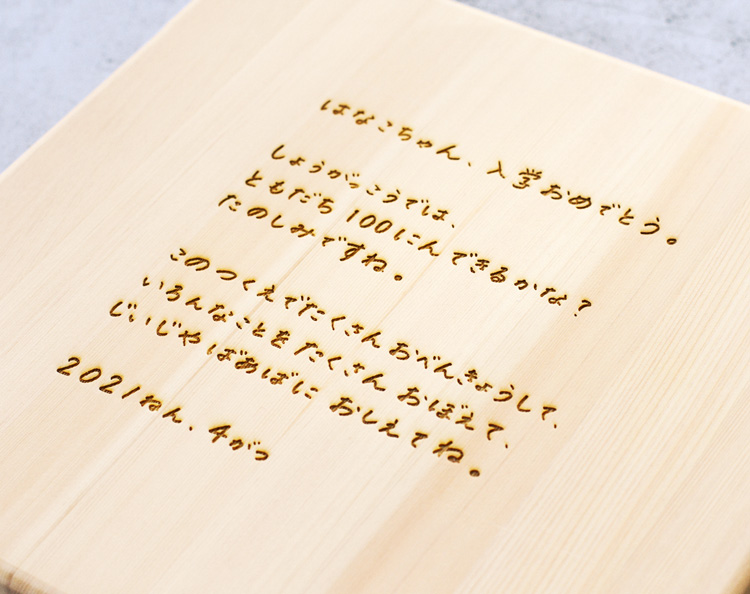 はなこちゃん、入学おめでとう。
しょうがっこうでは、
ともだち 100にん できるかな?
たのしみですね。
このつくえでたくさん おべんきょうして、
いろんなことを たくさん おぼえて、
じぃじやばあばに おしえてね。
2021ねん、4がつ